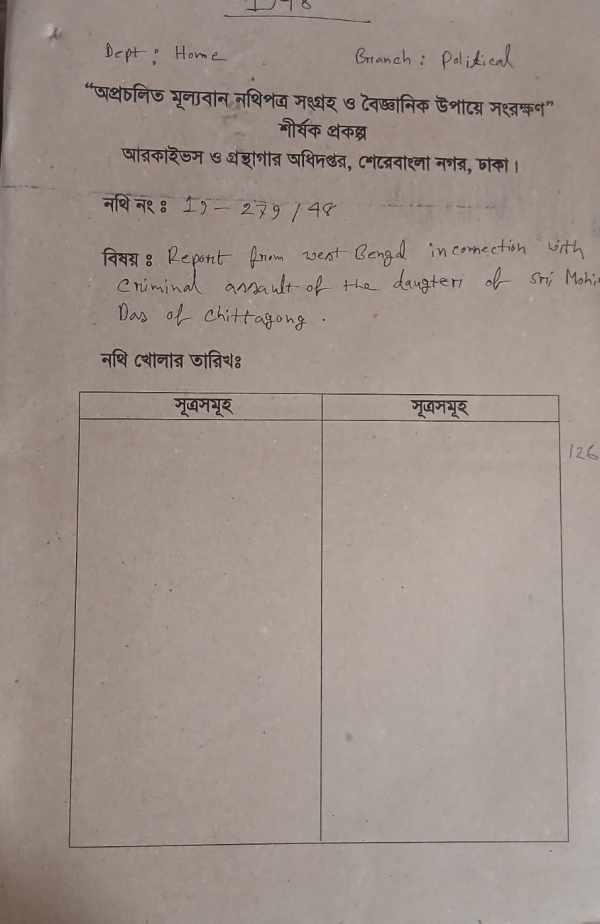 Dept : Home Branch : Political
"অপ্রচলিত মূল্যবান নথিপত্র সংগ্রহ ও বৈজ্ঞানিক উপায়ে সংরক্ষণ"
শীর্ষক প্রকল্প
আরকাইভস ও গ্রন্থাগার অধিদপ্তর, শেরেবাংলা নগর, ঢাকা।
নথি নং ঃ 1J – 279 / 48
বিষয় ঃ Report from west Bengal in connection with
Criminal assault of the daugter of Sri Mohi
Das of Chittagong .
নথি খোলার তারিখঃ
সূত্রসমূহ সূত্রসমূহ
126